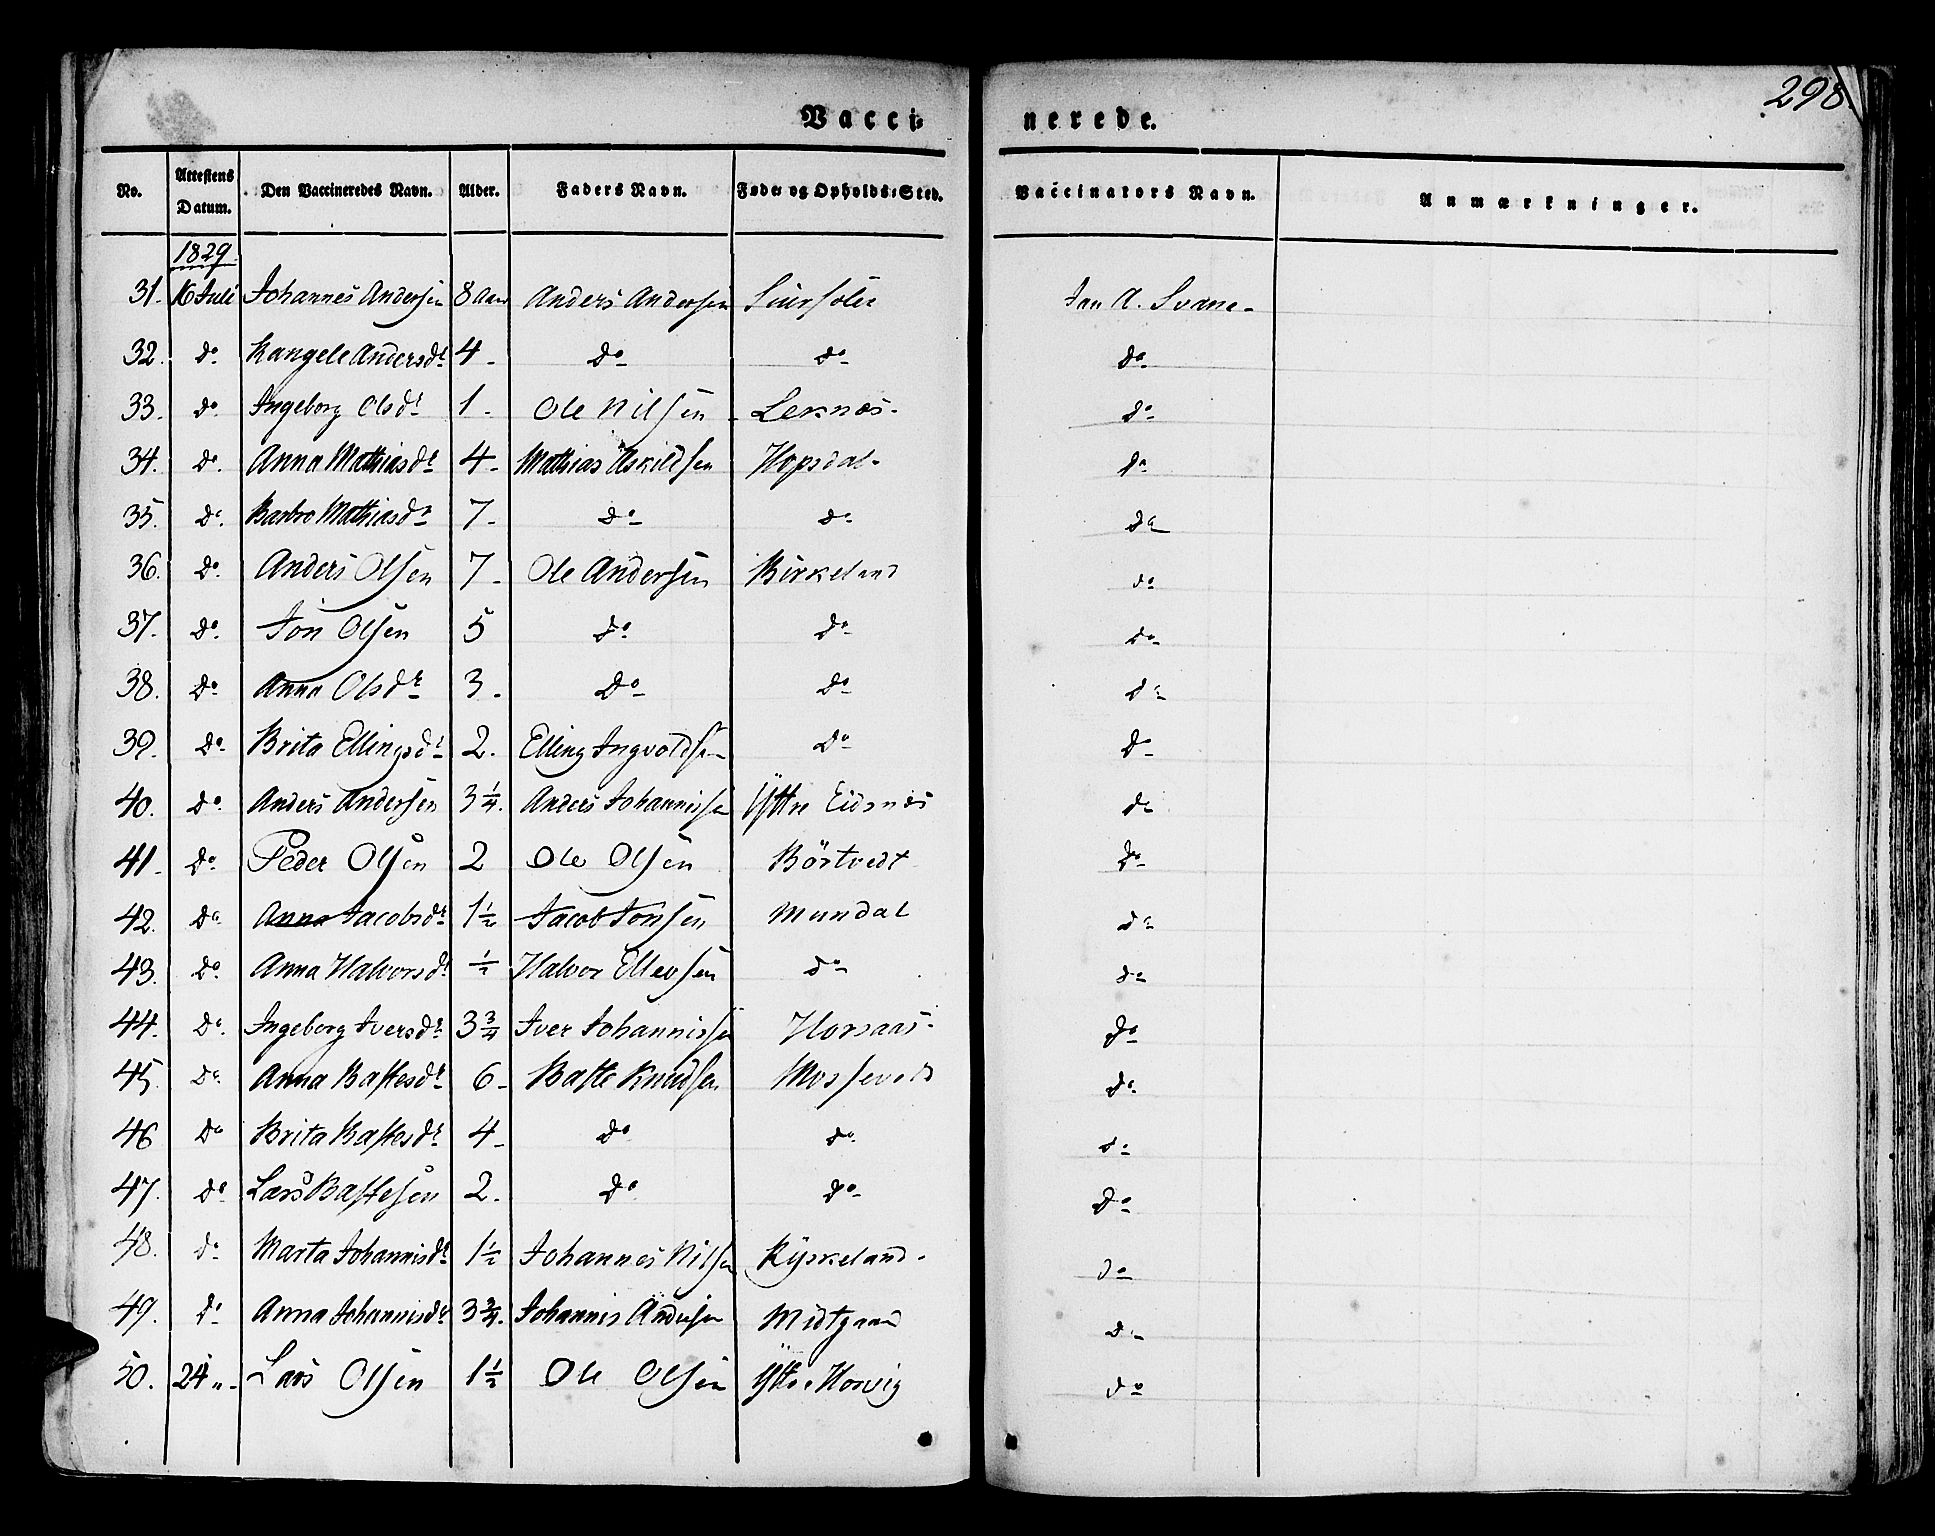 298.
Vacci- nerede.
No. | Attestens Datum. | Den Vaccineredes Navn. | Alder. | Faders Navn. | Føde- og Opholds-Sted. | Vaccinators Navn. | Anmærkninger.
1829.
31. | 16 Juli | Johannes Andersen | 8 Aar | Anders Andersen | | Jan A. Svane
32. | do. | Rangele Andersdr | 4 | do | do | do
33. | do. | Ingeborg Olsdr | 1 | Ole Nilsen | Leknæs | do
34. | do. | Anna Mathiasdr | 4 | Mathias Askildsen | Hopsdal | do
35. | do. | Barbro Mathiasdr | 7 | do | do | do
36. | do. | Anders Olsen | 7 | Ole Andersen | Birkeland | do
37. | do. | Jon Olsen | 5 | do | do | do
38. | do | Anna Olsdr | 3 | do | do | do
39. | do | Brita Ellingsdr | 2 | Elling Ingvoldsen | do | do
40. | do. | Anders Andersen | 3 1/4 | Anders Johannissen | Yttre Eidsnæs | do
41 | do. | Peder Olsen | 2 | Ole Olsen | Börtvedt | do
42. | do | Anna Jacobsdr | 1 1/2 | Jacob Jonsen | Mundal | do
43. | do. | Anna Halvorsdr | 1/2 | Halvor Ellevsen | do | do
44. | do. | Ingeborg Iversdr | 3 3/4 | Iver Johannissen | Horsaas | do
45. | do. | Anna Bastesdr | 6 | Baste Knudsen | | do
46 | do | Brita Bastesdr | 4 | do | do | do
47. | do | Lars Bastesen | 2. | do | do | do
48. | do | Marta Johannisdr | 1 1/2 | Johannes Nilsen | Kyrkeland | do
49. | do | Anna Johannisdr | 3 3/4 | Johannis Andersen | Midtgaard | do
50. | 24 " | Lars Olsen | 1 1/2 | Ole Olsen | Yttre Horvig | do